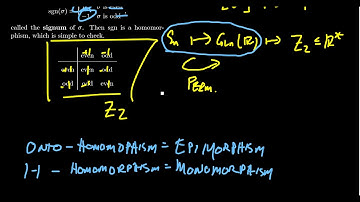 sgn(σ)
−1 σ is odd
called the signum of σ. Then sgn is a homomor-
phism, which is simple to check.
even odd
even even odd
odd odd even
Z₂
Sₙ ↦ GLₙ(ℝ) ↦ Z₂ ≤ ℝ*
PERM.
ONTO - HOMOMORPHISM = EPIMORPHISM
1-1 - HOMOMORPHISM = MONOMORPHISM